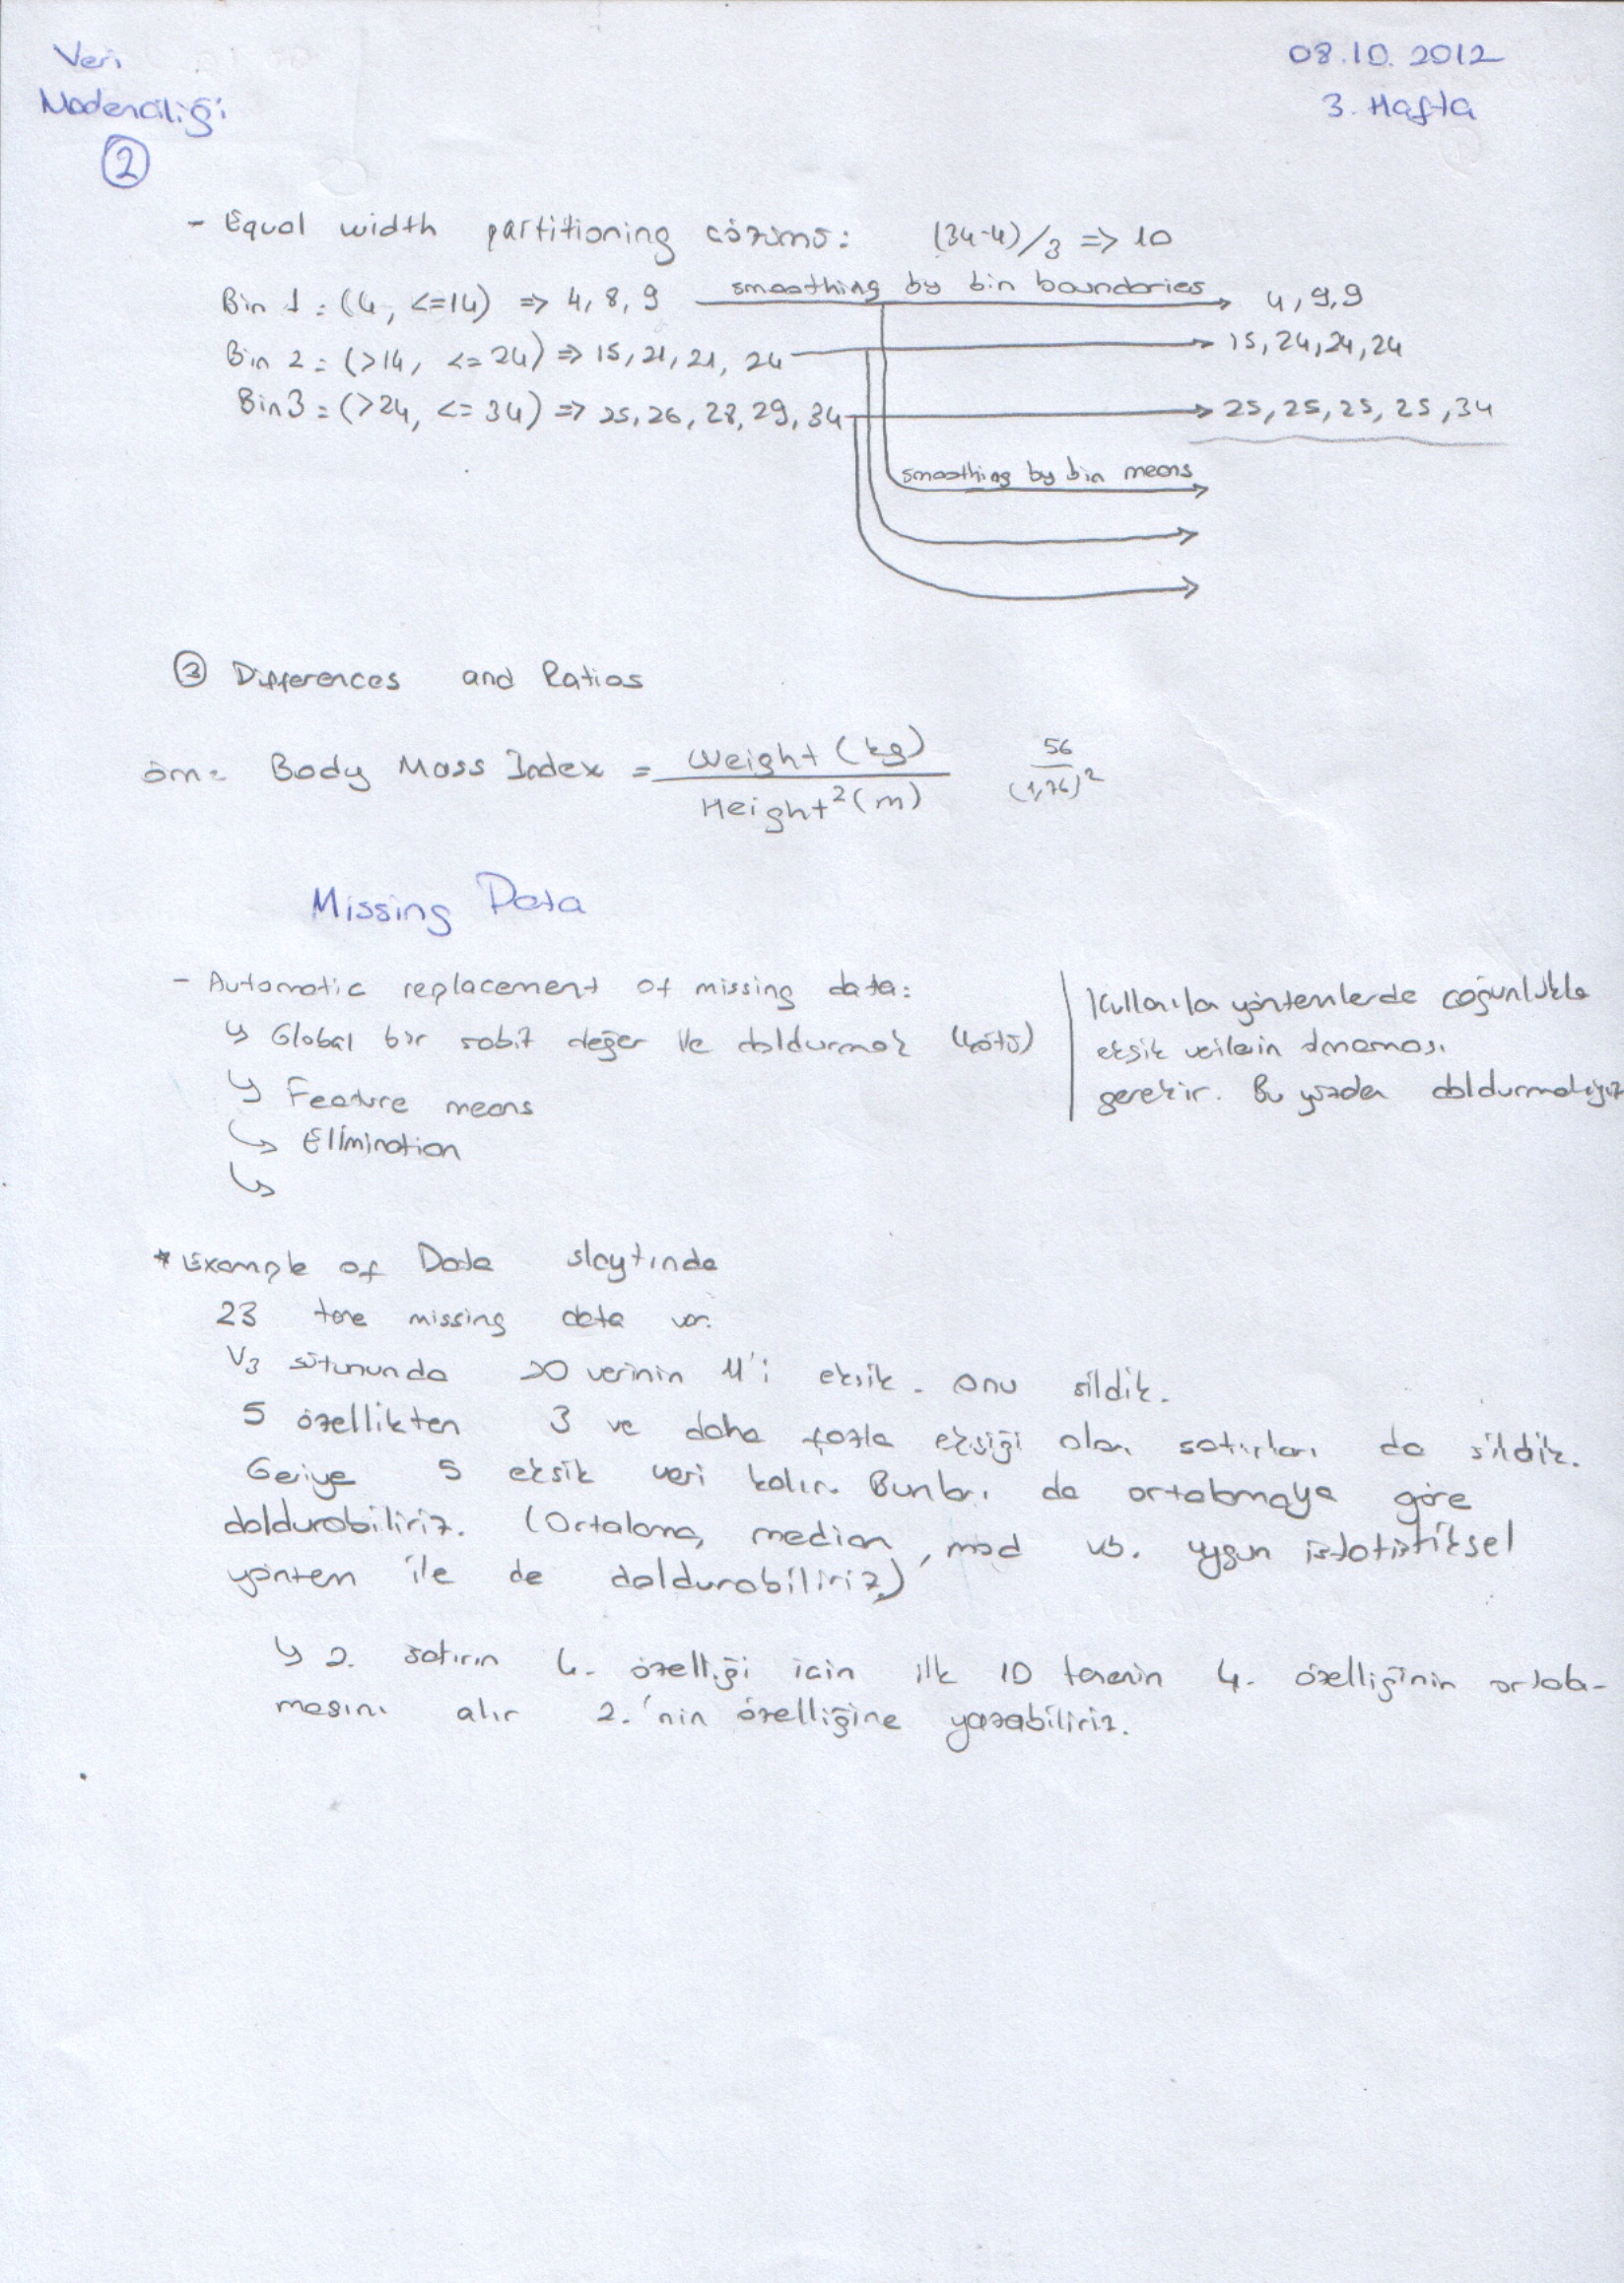 Veri
Madenciliği
2
08.10.2012
3. Hafta
- Equal width partitioning çözümü: (34-4)/3 => 10
Bin 1 = (4, <=14) => 4, 8, 9 smoothing by bin boundaries 4, 9, 9
Bin 2 = (>14, <= 24) => 15, 21, 21, 24 15, 24, 24, 24
Bin 3 = (>24, <= 34) => 25, 26, 28, 29, 34 25, 25, 25, 25, 34
smoothing by bin means
3 Differences and Ratios
örn: Body Mass Index = Weight (kg) / Height² (m) 56 / (1,76)²
Missing Data
- Automatic replacement of missing data:
↳ Global bir sabit değer ile doldurmak (kötü)
↳ Feature means
↳ Elimination
↳
Kullanılan yöntemlerde çoğunlukla
eksik verilerin olmaması
gerekir. Bu yüzden doldurmalıyız
* Example of Data slaytında
23 tane missing data var.
V3 sütununda 20 verinin 11'i eksik. onu sildik.
5 özellikten 3 ve daha fazla eksiği olan satırları da sildik.
Geriye 5 eksik veri kalır. Bunları da ortalamaya göre
doldurabiliriz. (Ortalama, median, mod vs. uygun istatistiksel
yöntem ile de doldurabiliriz.)
↳ 2. satırın 4. özelliği için ilk 10 tanenin 4. özelliğinin ortala-
masını alır 2.'nin özelliğine yazabiliriz.